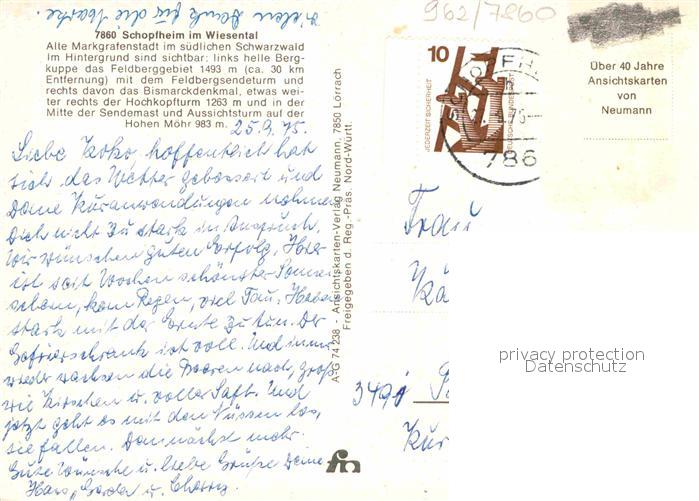 Vielen Dank für die Karte.
962/7860
7860 Schopfheim im Wiesental
Alte Markgrafenstadt im südlichen Schwarzwald
Im Hintergrund sind sichtbar: links helle Berg-
kuppe das Feldberggebiet 1493 m (ca. 30 km
Entfernung) mit dem Feldbergsendeturm und
rechts davon das Bismarckdenkmal, etwas wei-
ter rechts der Hochkopfturm 1263 m und in der
Mitte der Sendemast und Aussichtsturm auf der
Hohen Möhr 983 m.
25.9.75.
Liebe Koko, hoffentlich hat
sich das Wetter gebessert und
Deine Kuranwendungen nehmen
Dich nicht zu stark in Anspruch.
Wir wünschen guten Erfolg. Hier
ist seit Wochen schönster Sonnen-
schein, kein Regen, viel Tau. Haben
stark mit der Ernte zu tun. Der
Gefrierschrank ist voll. Und immer
wieder wachsen die Beeren nach, groß
wie Kirschen u. voller Saft. Und
jetzt geht es mit den Nüssen los,
sie fallen. Demnächst mehr.
Gute Wünsche u. liebe Grüße Deine
Hans, Gerda u.
A-G 74 238 - Ansichtskarten-Verlag Neumann, 7850 Lörrach
Freigegeben d. Reg.-Präs. Nord-Württ.
fn
10
JEDERZEIT SICHERHEIT
DEUTSCHE BUNDESPOST
786
Über 40 Jahre
Ansichtskarten
von
Neumann
Frau
3491
Kur
privacy protection
Datenschutz